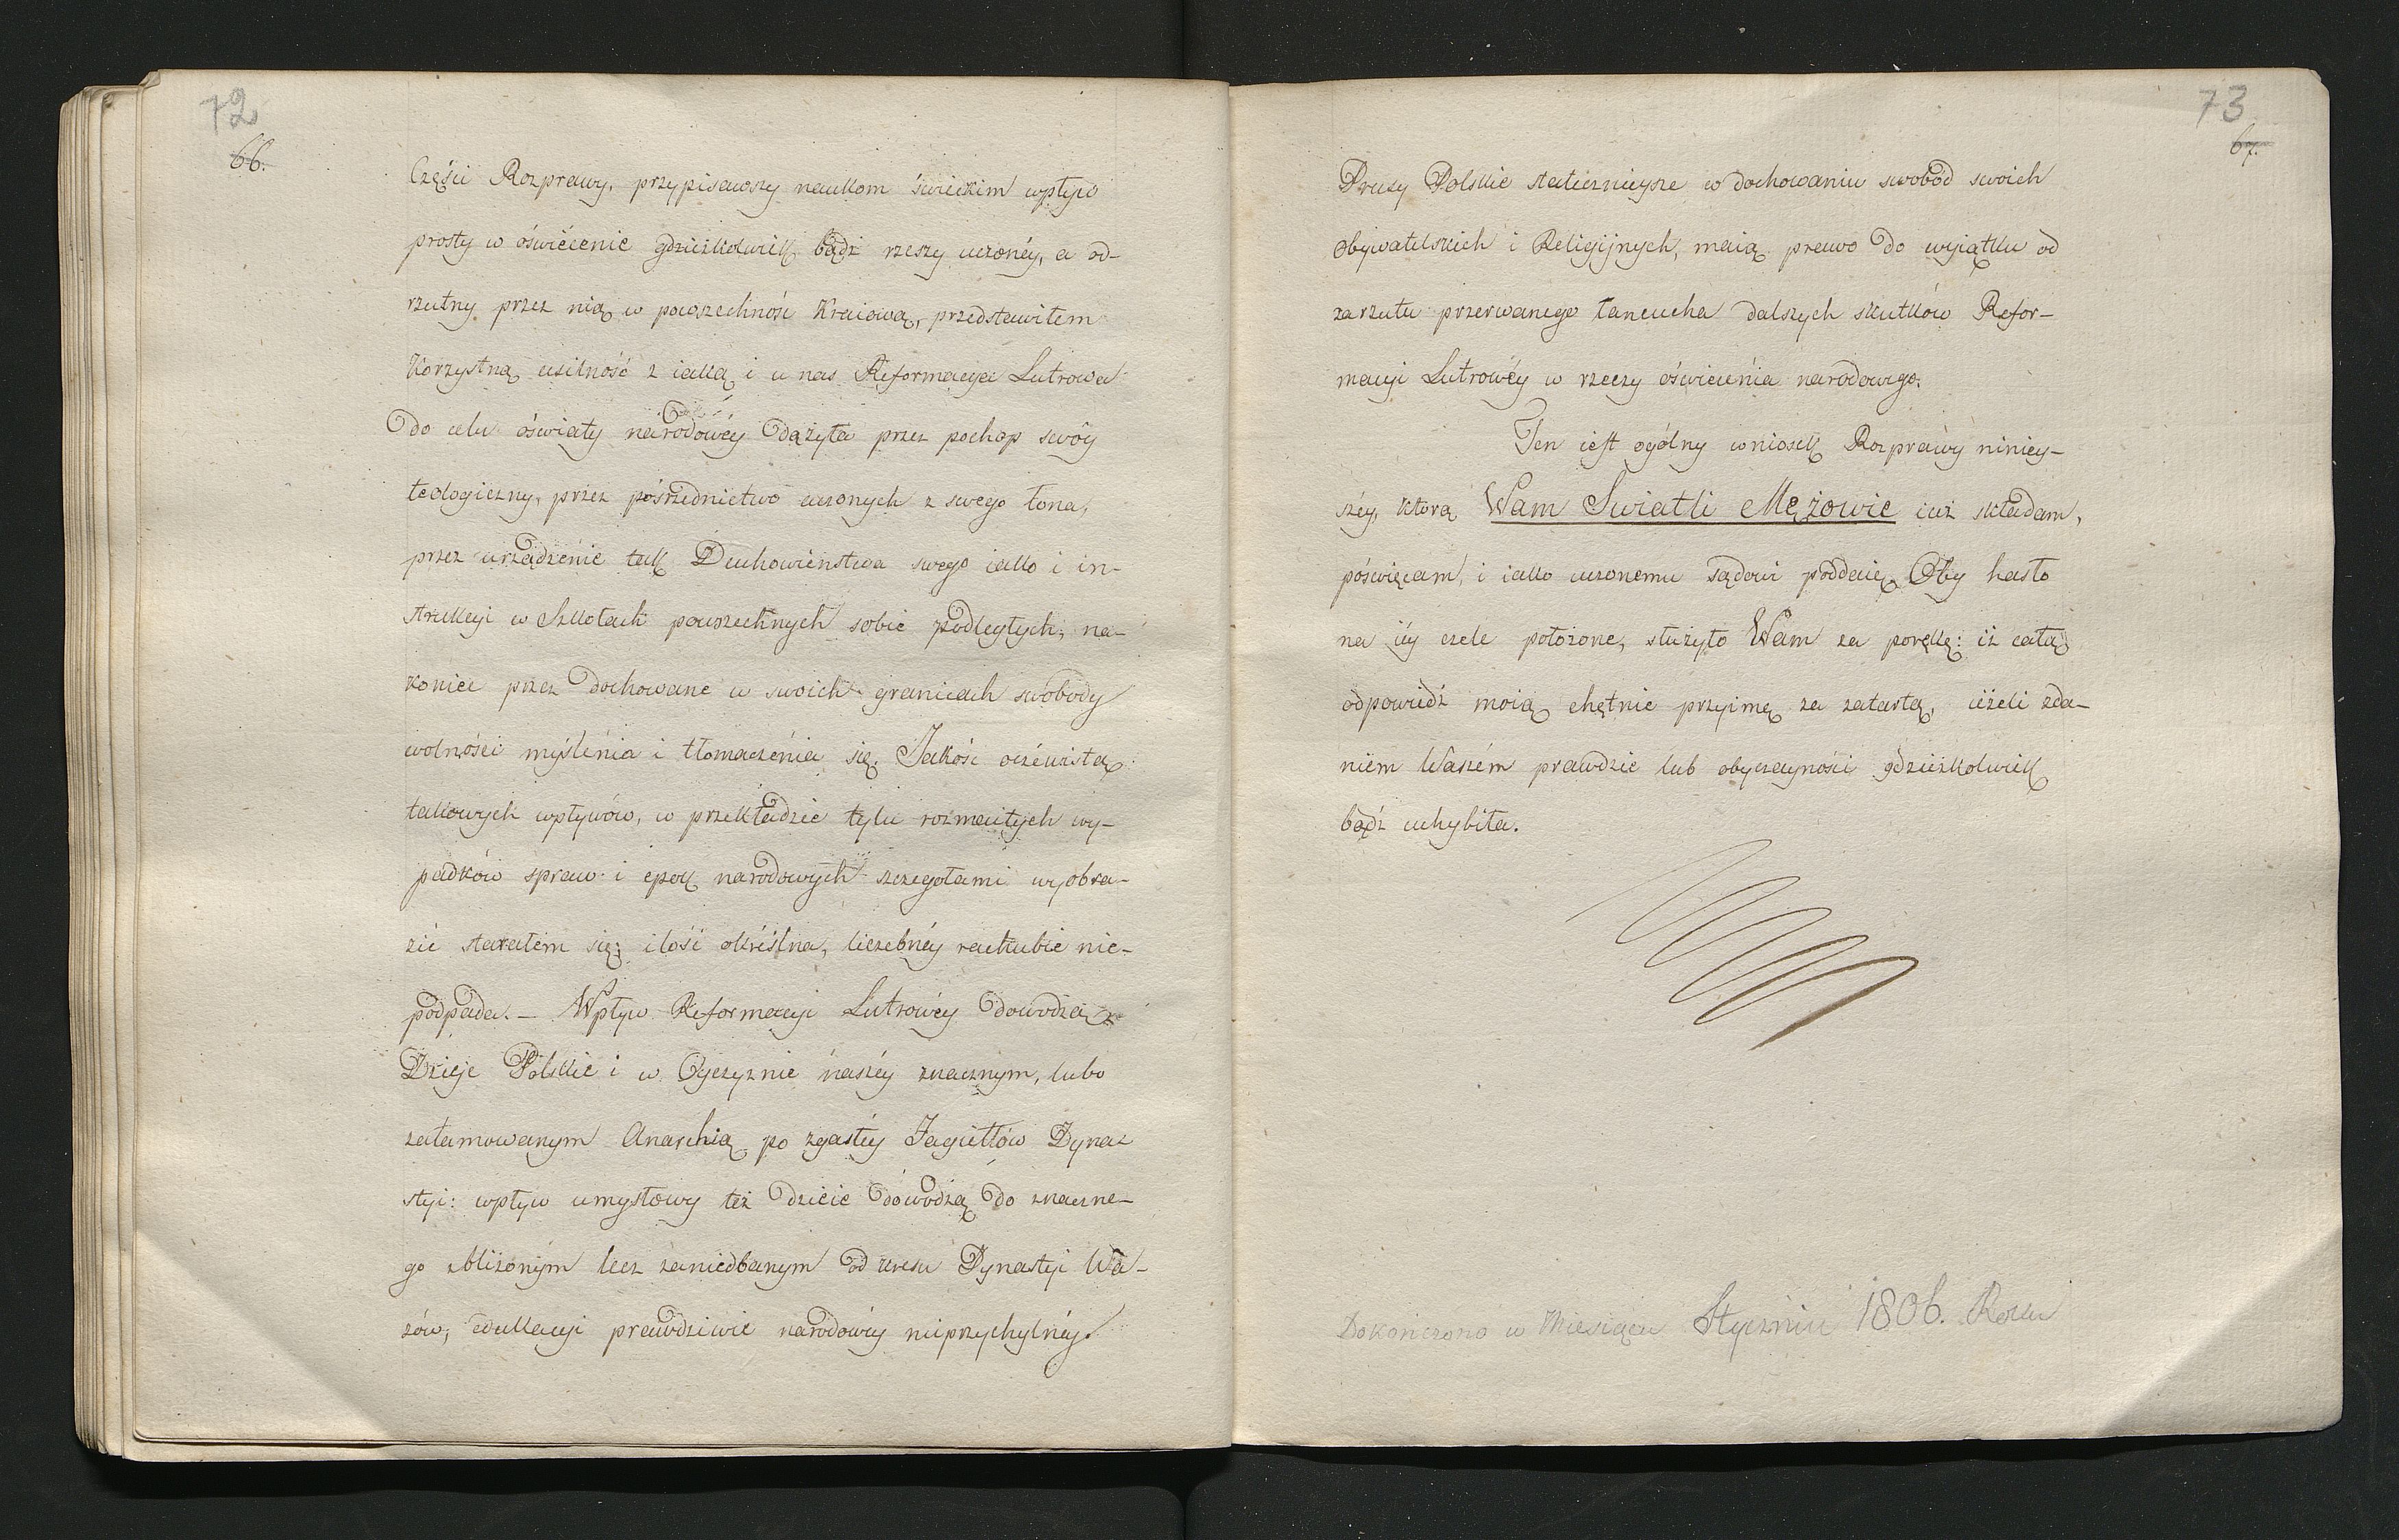 72
66.
Części Rozprawy, przypisawszy naukom świeckim wpływ
prosty w oświécenie gdzieżkolwiek bądź rzeszy uczonéy, a od-
rzutny przez nią w powszechność Kraiową, przedstawiłem
Korzystną usilność z iaką i u nas Reformacya Lutrowa
do celu oświaty narodowéy dążyła przez pochop swóy
teologiczny, przez pośrzednictwo uczonych z swego łona,
przez urządzenie tak Duchowieństwa swego iako i in-
strukcyi w Szkołach powszechnych sobie podległych, na-
koniec przez dochowane w swoich granicach swobody
wolności myślenia i tłomaczenia się. Jakość oczéwistą
takowych wpływów, w przekładzie tylu rozmaitych wy-
padków spraw i epok narodowych szczegołami wyobra-
zić starałem się; ilość okréślna, liczebnéy rachubie nie-
podpada. – Wpływ Reformacyi Lutrowéy dowodzą
Dzieje Polskie i w Oyczyznie naszéy znacznym, lubo
zatamowanym Anarchią po zgasłéy Jagiełłów Dyna-
styi: wpływ umysłowy też dzieie dowodzą do znaczne-
go zbliżonym lecz zaniedbanym od kresu Dynastyi Wa-
zów, edukacyi prawdziwie narodowéy nieprzychylnéy.
73
67.
Prusy Polskie statecznieysze w dochowaniu swobód swoich
obywatelskich i Religijnych, maią prawo do wyiątku od
zarzutu przerwanego łancucha dalszych skutków Refor-
macyi Lutrowéy w rzeczy oświecenia narodowego.
Ten iest ogólny wniosek Rozprawy niniey-
széy, którą Wam Swiatli Mężowie iuż składam,
poświęcam, i iako uczonemu sądowi poddaię. Oby hasło
na iéy czele położone, służyło Wam za porękę: iż całą
odpowiedź moią chętnie przyimę za zatartą, ieżeli zda-
niem Waszém prawdzie lub obyczayności gdzieżkolwiek
bądź uchybiła.
Dokończono w Miesiącu Styczniu 1806. Roku